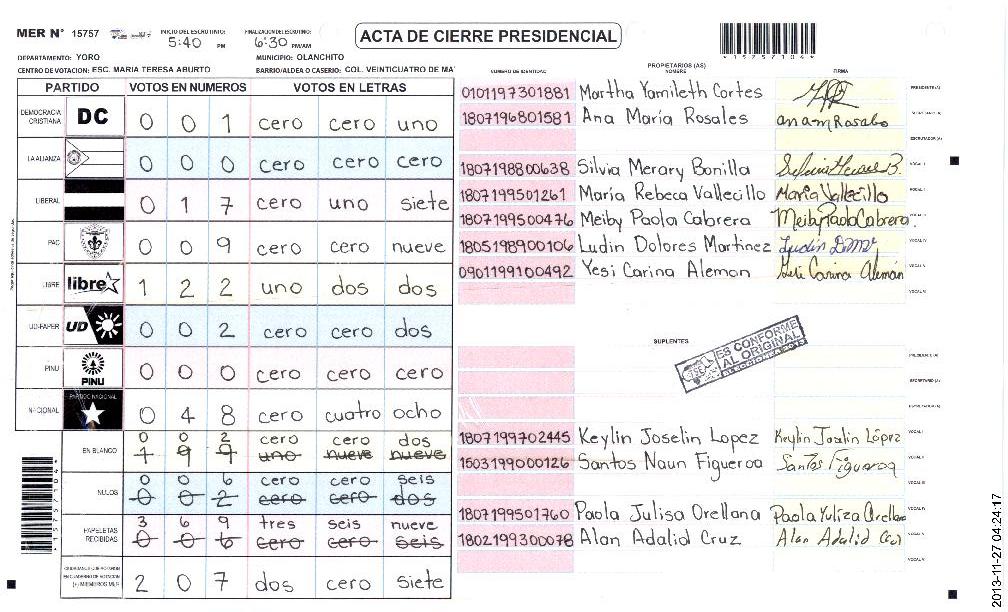 MER N° 15757
INICIO DEL ESCRUTINIO: 5:40 PM
FINALIZACION DEL ESCRUTINIO: 6:30 PM/AM
ACTA DE CIERRE PRESIDENCIAL
*15757104*
DEPARTAMENTO: YORO
MUNICIPIO: OLANCHITO
CENTRO DE VOTACION: ESC. MARIA TERESA ABURTO
BARRIO/ALDEA O CASERIO: COL. VEINTICUATRO DE MA
PARTIDO VOTOS EN NUMEROS VOTOS EN LETRAS
DEMOCRACIA CRISTIANA DC 0 0 1 cero cero uno
LA ALIANZA 0 0 0 cero cero cero
LIBERAL 0 1 7 cero uno siete
PAC 0 0 9 cero cero nueve
LIBRE libre 1 2 2 uno dos dos
UD-FAPER UD 0 0 2 cero cero dos
PINU PINU 0 0 0 cero cero cero
NACIONAL PARTIDO NACIONAL 0 4 8 cero cuatro ocho
EN BLANCO 0 0 2 cero cero dos
1 9 9 uno nueve nueve
NULOS 0 0 6 cero cero seis
0 0 2 cero cero dos
PAPELETAS RECIBIDAS 3 6 9 tres seis nueve
0 0 6 cero cero seis
CIUDADANOS QUE VOTARON EN CUADERNO DE VOTACION (+) MIEMBROS MER 2 0 7 dos cero siete
*15757104*
NUMERO DE IDENTIDAD PROPIETARIOS (AS) NOMBRE FIRMA
0101197301881 Martha Yamileth Cortes PRESIDENTE(A)
1807196801581 Ana María Rosales ana m Rosales SECRETARIO(A)
ESCRUTADOR(A)
1807198800638 Silvia Merary Bonilla VOCAL I
1807199501261 María Rebeca Vallecillo María Vallecillo VOCAL II
1807199500476 Meiby Paola Cabrera Meiby Paola Cabrera VOCAL III
1805198900106 Ludin Dolores Martinez Ludin VOCAL IV
0901199100492 Yesi Carina Aleman Yesi Carina Alemán VOCAL V
VOCAL VI
SUPLENTES
ES CONFORME AL ORIGINAL
PRESIDENTE(A)
SECRETARIO(A)
ESCRUTADOR(A)
1807199702445 Keylin Joselin Lopez Keylin Joselin López VOCAL I
1503199000126 Santos Naun Figueroa Santos Figueroa VOCAL II
VOCAL III
1807199501760 Paola Julisa Orellana Paola Yuliza Orellana VOCAL IV
1802199300078 Alan Adalid Cruz Alan Adalid Cruz VOCAL V
VOCAL VI
2013-11-27 04:24:17